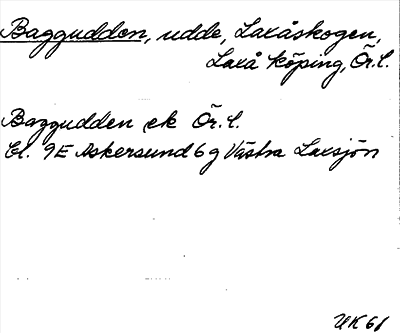 Baggudden, udde, Laxåskogen,
Laxå köping, Ör. l.
Baggudden ek Ör. l.
Bl. 9E Askersund 6 g Västra Laxsjön
UK 61